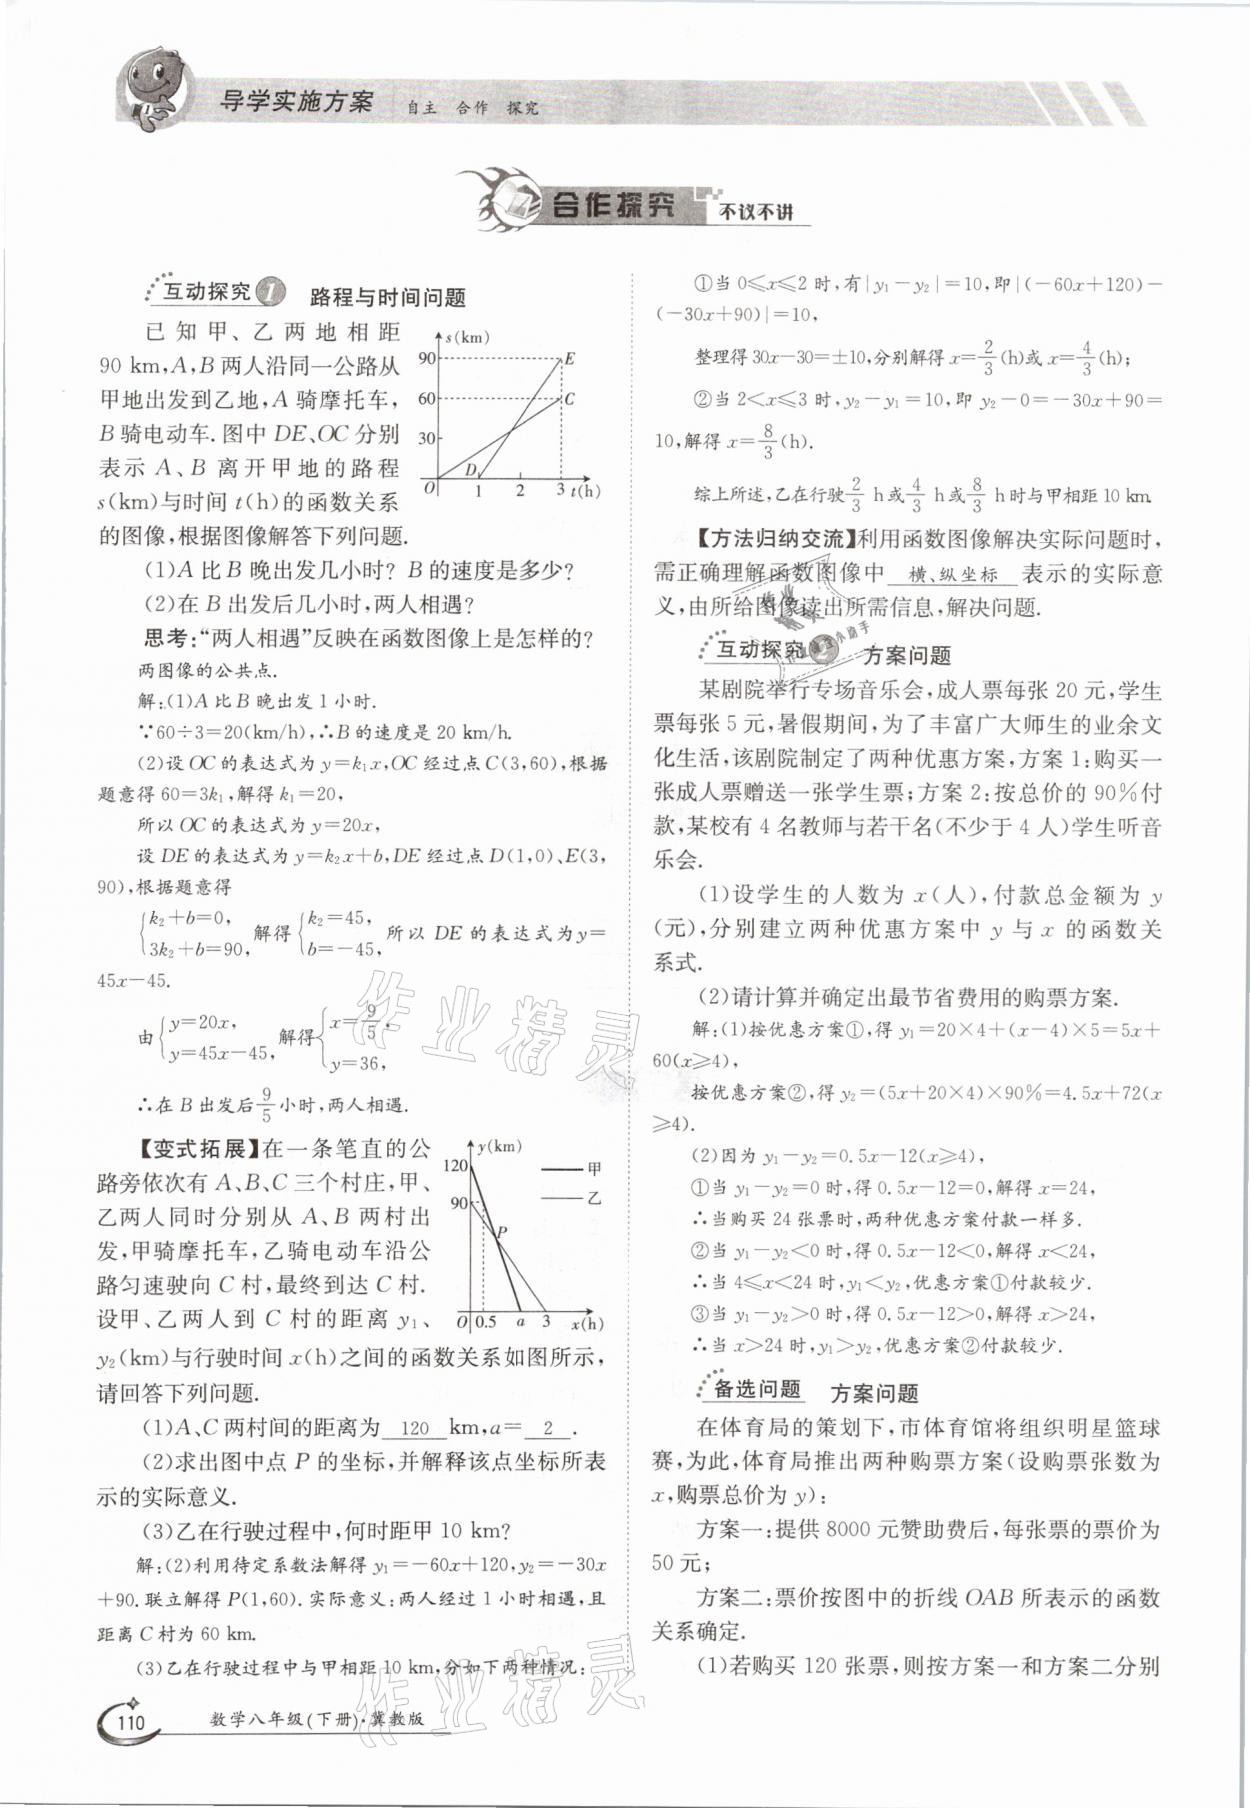 导学实施方案 自主 合作 探究
合作探究 不议不讲
互动探究1 路程与时间问题
已知甲、乙两地相距
90 km,A,B两人沿同一公路从
甲地出发到乙地,A骑摩托车,
B骑电动车.图中DE、OC分别
表示A、B离开甲地的路程
s(km)与时间t(h)的函数关系
的图像,根据图像解答下列问题.
s(km)
90
60
30
E
C
D
O 1 2 3 t(h)
(1)A比B晚出发几小时?B的速度是多少?
(2)在B出发后几小时,两人相遇?
思考:“两人相遇”反映在函数图像上是怎样的?
两图像的公共点.
解:(1)A比B晚出发1小时.
∵60÷3=20(km/h),∴B的速度是20 km/h.
(2)设OC的表达式为y=k₁x,OC经过点C(3,60),根据
题意得60=3k₁,解得k₁=20,
所以OC的表达式为y=20x,
设DE的表达式为y=k₂x+b,DE经过点D(1,0)、E(3,
90),根据题意得
{k₂+b=0, 3k₂+b=90, 解得{k₂=45, b=-45, 所以DE的表达式为y=
45x-45.
由{y=20x, y=45x-45, 解得{x=9/5, y=36,
∴在B出发后9/5小时,两人相遇.
【变式拓展】在一条笔直的公
路旁依次有A、B、C三个村庄,甲、
乙两人同时分别从A、B两村出
发,甲骑摩托车,乙骑电动车沿公
路匀速驶向C村,最终到达C村.
设甲、乙两人到C村的距离y₁、
y₂(km)与行驶时间x(h)之间的函数关系如图所示,
请回答下列问题.
y(km)
120
90
甲
乙
P
O 0.5 a 3 x(h)
(1)A、C两村间的距离为 120 km,a= 2 .
(2)求出图中点P的坐标,并解释该点坐标所表
示的实际意义.
(3)乙在行驶过程中,何时距甲10 km?
解:(2)利用待定系数法解得y₁=-60x+120,y₂=-30x
+90.联立解得P(1,60).实际意义:两人经过1小时相遇,且
距离C村为60 km.
(3)乙在行驶过程中与甲相距10 km,分如下两种情况:
①当0≤x≤2时,有|y₁-y₂|=10,即|(-60x+120)-
(-30x+90)|=10,
整理得30x-30=±10,分别解得x=2/3(h)或x=4/3(h);
②当2<x≤3时,y₂-y₁=10,即y₂-0=-30x+90=
10,解得x=8/3(h).
综上所述,乙在行驶2/3 h或4/3 h或8/3 h时与甲相距10 km.
【方法归纳交流】利用函数图像解决实际问题时,
需正确理解函数图像中 横、纵坐标 表示的实际意
义,由所给图像读出所需信息,解决问题.
互动探究2 方案问题
某剧院举行专场音乐会,成人票每张20元,学生
票每张5元,暑假期间,为了丰富广大师生的业余文
化生活,该剧院制定了两种优惠方案,方案1:购买一
张成人票赠送一张学生票;方案2:按总价的90%付
款,某校有4名教师与若干名(不少于4人)学生听音
乐会.
(1)设学生的人数为x(人),付款总金额为y
(元),分别建立两种优惠方案中y与x的函数关
系式.
(2)请计算并确定出最节省费用的购票方案.
解:(1)按优惠方案①,得y₁=20×4+(x-4)×5=5x+
60(x≥4),
按优惠方案②,得y₂=(5x+20×4)×90%=4.5x+72(x
≥4).
(2)因为y₁-y₂=0.5x-12(x≥4),
①当y₁-y₂=0时,得0.5x-12=0,解得x=24,
∴当购买24张票时,两种优惠方案付款一样多.
②当y₁-y₂<0时,得0.5x-12<0,解得x<24,
∴当4≤x<24时,y₁<y₂,优惠方案①付款较少.
③当y₁-y₂>0时,得0.5x-12>0,解得x>24,
∴当x>24时,y₁>y₂,优惠方案②付款较少.
备选问题 方案问题
在体育局的策划下,市体育馆将组织明星篮球
赛,为此,体育局推出两种购票方案(设购票张数为
x,购票总价为y):
方案一:提供8000元赞助费后,每张票的票价为
50元;
方案二:票价按图中的折线OAB所表示的函数
关系确定.
(1)若购买120张票,则按方案一和方案二分别
110 数学八年级(下册)·冀教版
作业精灵
作业精灵